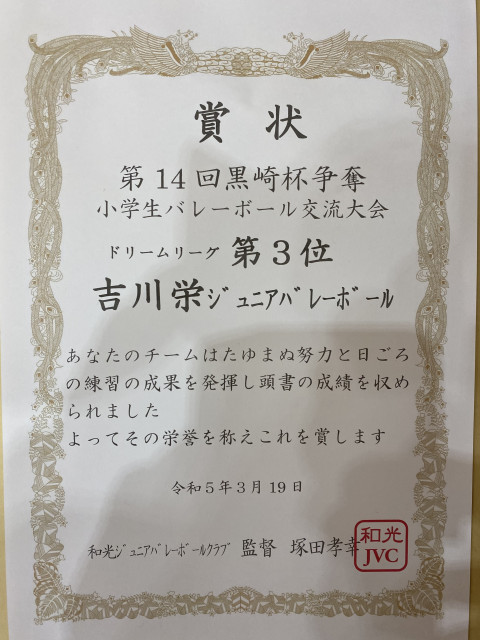 賞状
第14回黒崎杯争奪
小学生バレーボール交流大会
ドリームリーグ 第3位
吉川栄ジュニアバレーボール
あなたのチームはたゆまぬ努力と日ごろ
の練習の成果を発揮し頭書の成績を収め
られました
よってその栄誉を称えこれを賞します
令和5年3月19日
和光ジュニアバレーボールクラブ 監督 塚田孝幸
和光
JVC